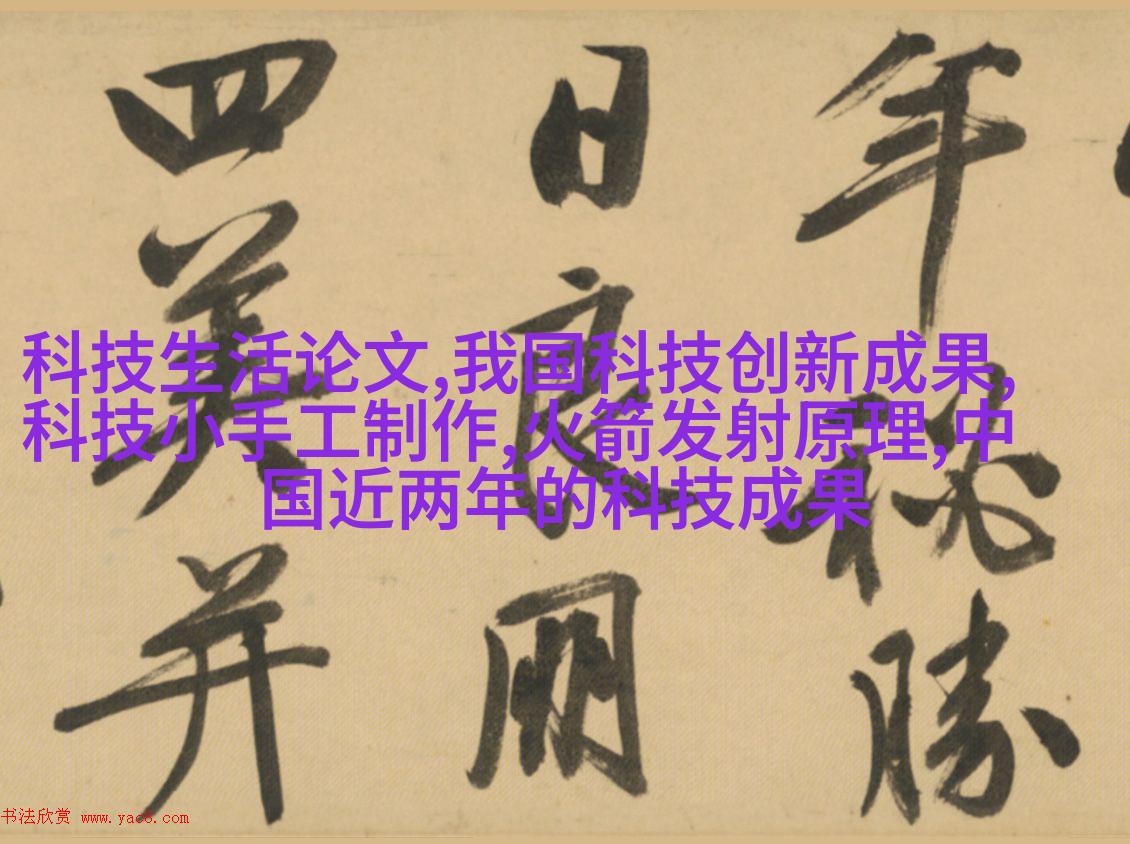 年勝
日良朋
四美并
科技生活论文,我国科技创新成果,
科技小手工制作,火箭发射原理,中
国近两年的科技成果
书法欣赏 www.yac8.com